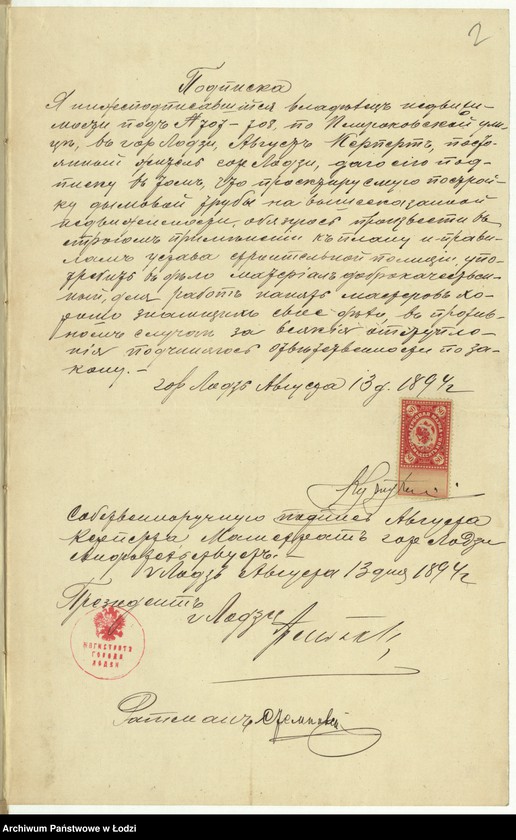 2
Подписка
Я нижеподписавшійся владѣлецъ недвижи-
мости подъ № 707-708, по Петроковской ули-
цѣ, въ гор. Лодзи, Августъ Кертертъ, посто-
янный житель гор. Лодзи, даю сію под-
писку въ томъ, что проектируемую построй-
ку дымовой трубы на вышесказанной
недвижимости, обязуюсь произвести въ
строгомъ примѣненіи къ плану и прави-
ламъ устава строительной полиціи, упо-
требить въ дѣло матеріалъ доброкачествен-
ный, для работъ нанять мастеровъ хо-
рошо знающихъ свое дѣло, въ против-
номъ случаѣ за всякія отступле-
нія подчиняюсь отвѣтственности по за-
кону.-
гор. Лодзь Августа 13 д. 1894 г
Собственноручную подпись Августа
Кертерта Магистратъ гор. Лодзи
свидѣтельствуетъ.
г. Лодзь Августа 13 дня 1894 г
Президентъ
г. Лодзи
МАГИСТРАТЪ
ГОРОДА
ЛОДЗИ
Ратманъ
Archiwum Państwowe w Łodzi